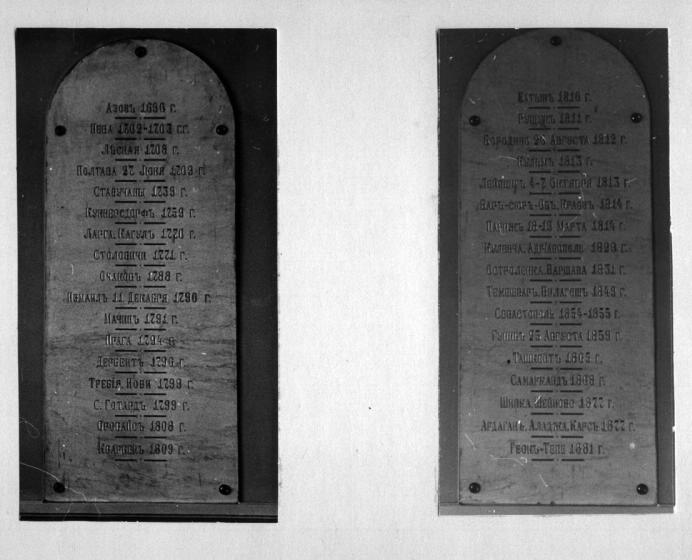 Азовъ 1696 г.
Нева 1702-1703 гг.
Лѣсная 1708 г.
Полтава 27 Iюня 1709 г.
Ставучаны 1739 г.
Куннерсдорфъ 1759 г.
Ларга. Кагулъ 1770 г.
Столовичи 1771 г.
Очаковъ 1788 г.
Измаилъ 11 Декабря 1790 г.
Мачинъ 1791 г.
Прага 1794 г.
Дербентъ 1796 г.
Требiя. Нови 1799 г.
С. Готардъ 1799 г.
Оровайсъ 1808 г.
1809 г.
Батынъ 1810 г.
Рущукъ 1811 г.
Бородино 26 Августа 1812 г.
Кульмъ 1813 г.
Лейпцигъ 4-7 Октября 1813 г.
Баръ-сюръ-Объ. Краонъ 1814 г.
Парижъ 18-19 Марта 1814 г.
Кулевча. Адрiанополь 1829 г.
Остроленка. Варшава 1831 г.
Темешваръ. Вилагошъ 1849 г.
Севастополь 1854-1855 г.
Гунибъ 25 Августа 1859 г.
Ташкентъ 1865 г.
Самаркандъ 1868 г.
Шипка. Шейново 1877 г.
Ардаганъ. Аладжа. Карсъ 1877 г.
Геокъ-Тепе 1881 г.